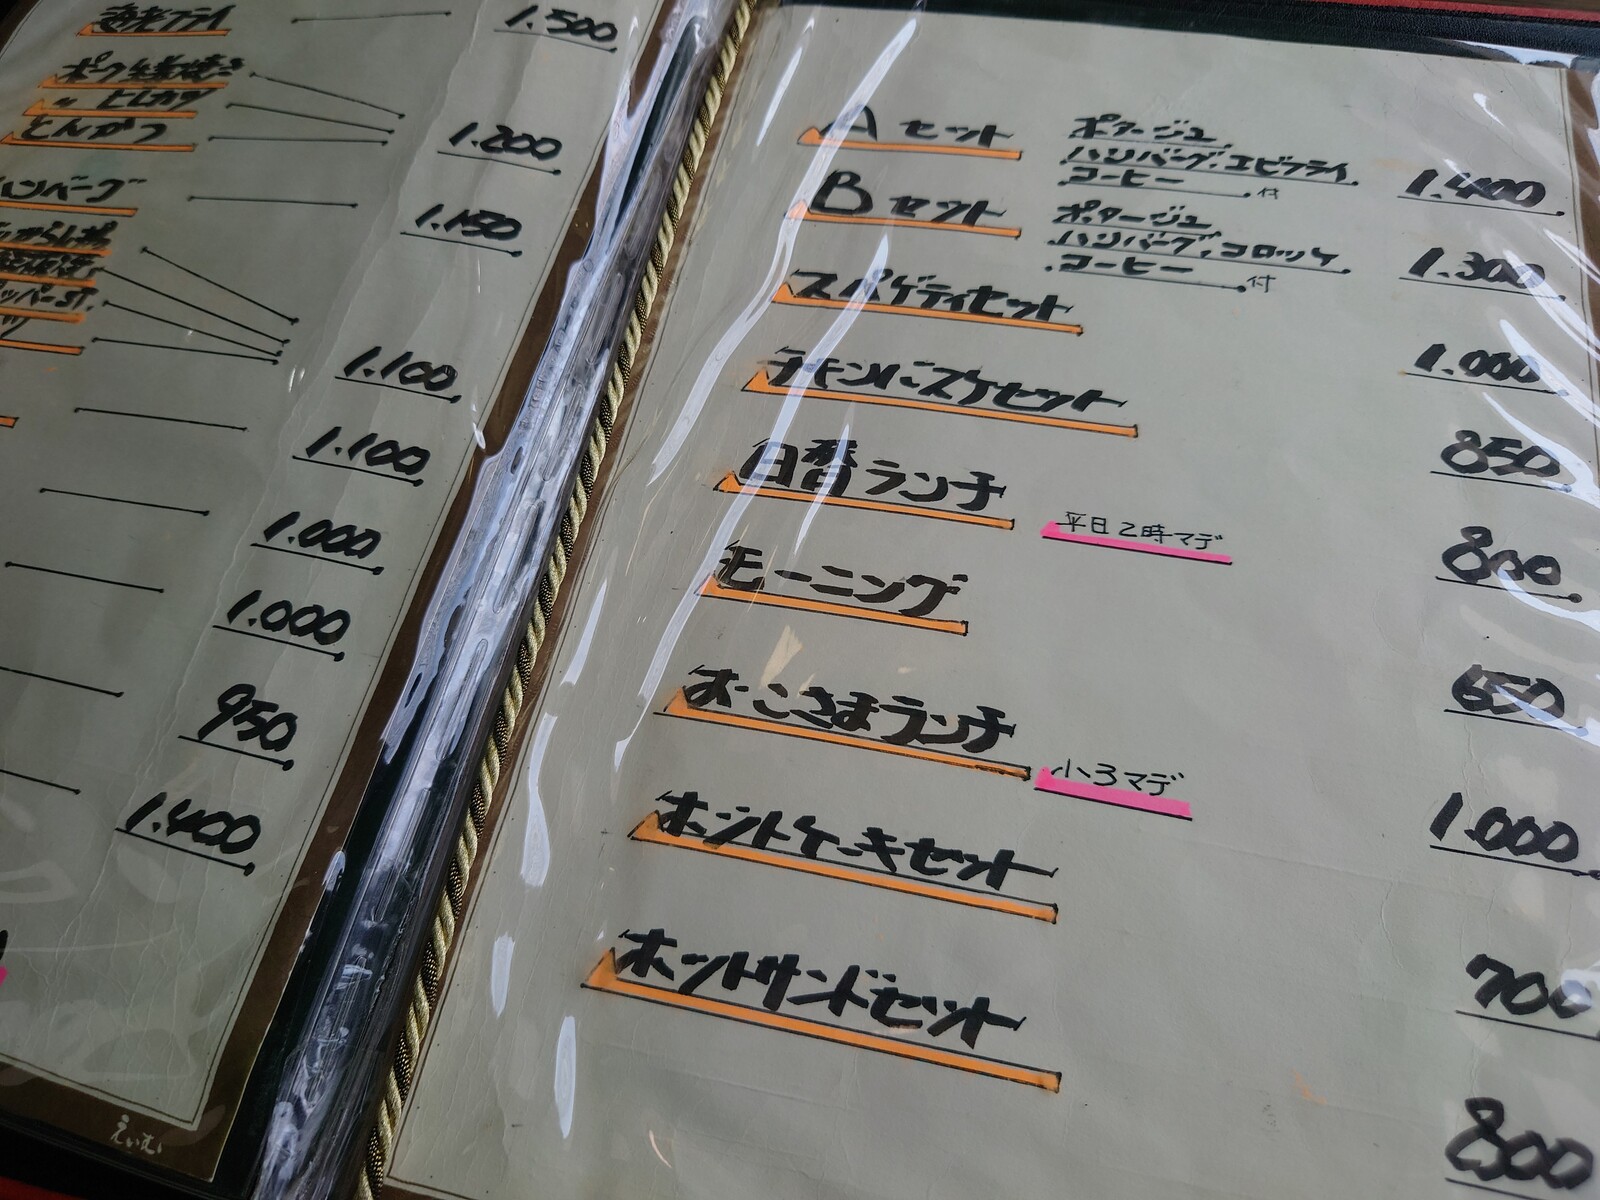 海老フライ 1.500
ポーク生姜焼き
〃 ヒレカツ
とんかつ 1.200
ハンバーグ 1.150
1.100
1.100
1.000
1.000
950
1.400
えいむ
Aセット ポタージュ
ハンバーグ、エビフライ
コーヒー 付 1.400
Bセット ポタージュ
ハンバーグ、コロッケ
コーヒー 付 1.300
スパゲティセット 1.000
チキンバスケセット 850
日替ランチ 平日2時マデ 800
モーニング 650
おこさまランチ 小3マデ 1.000
ホットケーキセット 700
ホットサンドセット 800